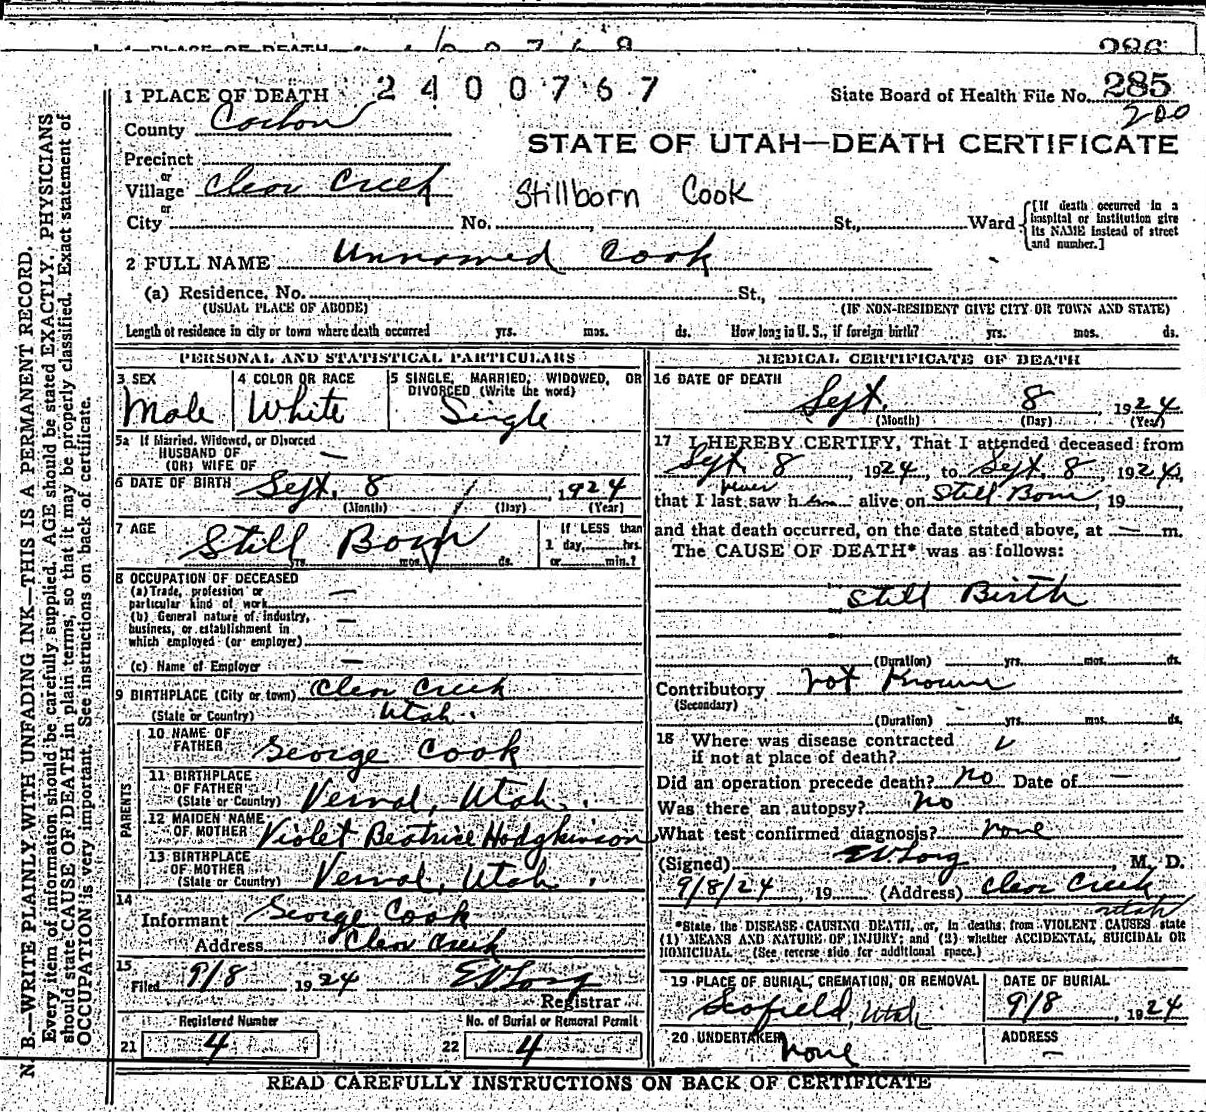 1 PLACE OF DEATH 2400767
State Board of Health File No. 285
200
County Carbon
STATE OF UTAH—DEATH CERTIFICATE
Precinct
or
Village Clear Creek
Stillborn Cook
or
City No. , St., Ward
[If death occurred in a hospital or institution give its NAME instead of street and number.]
2 FULL NAME Unnamed Cook
(a) Residence, No. St.,
(USUAL PLACE OF ABODE) (IF NON-RESIDENT GIVE CITY OR TOWN AND STATE)
Length of residence in city or town where death occurred yrs. mos. ds. How long in U. S., if foreign birth? yrs. mos. ds.
PERSONAL AND STATISTICAL PARTICULARS
3 SEX
Male
4 COLOR OR RACE
White
5 SINGLE, MARRIED, WIDOWED, OR
DIVORCED (Write the word)
Single
5a If Married, Widowed, or Divorced
HUSBAND OF
(OR) WIFE OF —
6 DATE OF BIRTH Sept. 8, 1924
(Month) (Day) (Year)
7 AGE
Still Born
yrs. mos. ds.
If LESS than
1 day, hrs.
or min.?
8 OCCUPATION OF DECEASED
(a) Trade, profession or
particular kind of work —
(b) General nature of industry,
business, or establishment in
which employed (or employer) —
(c) Name of Employer —
9 BIRTHPLACE (City or town) Clear Creek
(State or Country) Utah.
PARENTS
10 NAME OF
FATHER George Cook
11 BIRTHPLACE
OF FATHER
(State or Country) Vernal, Utah.
12 MAIDEN NAME
OF MOTHER Violet Beatrice Hodgkinson
13 BIRTHPLACE
OF MOTHER
(State or Country) Vernal, Utah.
14
Informant George Cook
Address Clear Creek
15
Filed 9/8 1924 EV Long
Registrar
Registered Number
21 4
No. of Burial or Removal Permit
22 4
MEDICAL CERTIFICATE OF DEATH
16 DATE OF DEATH
Sept. 8, 1924
(Month) (Day) (Year)
17 I HEREBY CERTIFY, That I attended deceased from
Sept 8, 1924, to Sept. 8, 1924,
never
that I last saw h im alive on Still Born, 19 ,
and that death occurred, on the date stated above, at — m.
The CAUSE OF DEATH* was as follows:
Still Birth
(Duration) yrs. mos. ds.
Contributory not Known
(Secondary)
(Duration) yrs. mos. ds.
18 Where was disease contracted
if not at place of death?
Did an operation precede death? no Date of —
Was there an autopsy? no
What test confirmed diagnosis? none
(Signed) EV Long, M. D.
9/8/24, 19 (Address) Clear Creek
Utah
*State the DISEASE CAUSING DEATH, or, in deaths from VIOLENT CAUSES state
(1) MEANS AND NATURE OF INJURY; and (2) whether ACCIDENTAL, SUICIDAL OR
HOMICIDAL. (See reverse side for additional space.)
19 PLACE OF BURIAL, CREMATION, OR REMOVAL
Scofield, Utah
DATE OF BURIAL
9/8, 1924
20 UNDERTAKER
none
ADDRESS
—
READ CAREFULLY INSTRUCTIONS ON BACK OF CERTIFICATE
N. B.—WRITE PLAINLY WITH UNFADING INK—THIS IS A PERMANENT RECORD.
Every item of information should be carefully supplied. AGE should be stated EXACTLY. PHYSICIANS
should state CAUSE OF DEATH in plain terms, so that it may be properly classified. Exact statement of
OCCUPATION is very important. See instructions on back of certificate.